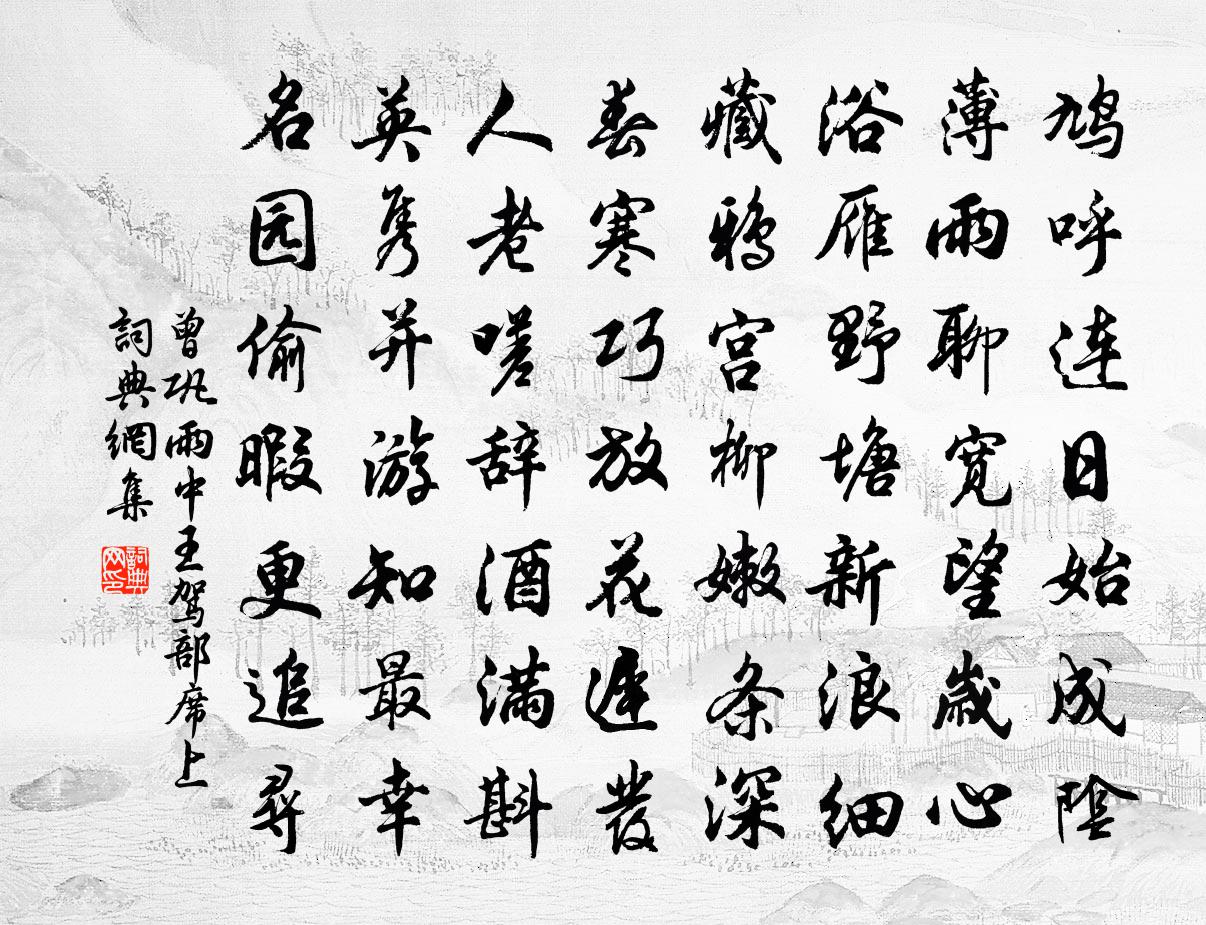 鸠呼连日始成陰
薄雨聊宽望歲心
浴雁野塘新浪细
藏鸦宫柳嫩条深
春寒巧放花遲發
人老嗟辞酒满斟
英隽并游知最幸
名园偷暇更追尋
曾巩雨中王驾部席上
詞典網集
詞典网印